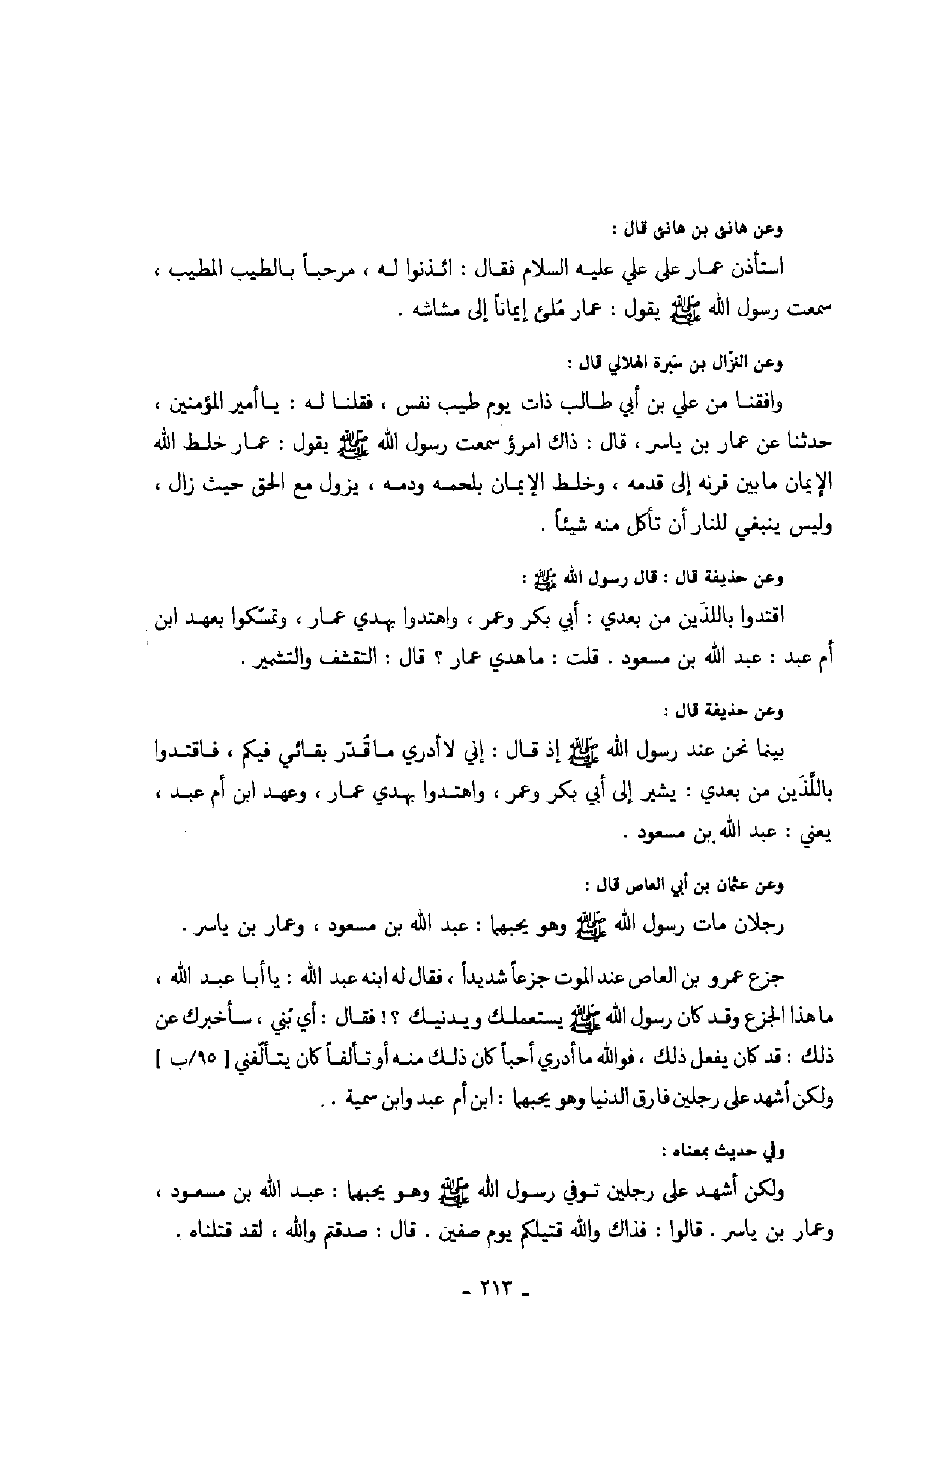 وعن هانئ بن هانئ قال :
استأذن عمار على علي عليه السلام فقال : ائذنوا له ، مرحباً بالطيب المطيب ،
سمعت رسول الله ﷺ يقول : عمار مُلئ إيماناً إلى مشاشه .
وعن النزّال بن سَبرة الهلالي قال :
وافقنا من علي بن أبي طالب ذات يوم طيب نفس ، فقلنا له : ياأمير المؤمنين ،
حدثنا عن عمار بن ياسر ، قال : ذاك امرؤ سمعت رسول الله ﷺ يقول : عمار خلط الله
الإيمان مابين قرنه إلى قدمه ، وخلط الإيمان بلحمه ودمه ، يزول مع الحق حيث زال ،
وليس ينبغي للنار أن تأكل منه شيئاً .
وعن حذيفة قال : قال رسول الله ﷺ :
اقتدوا باللذَين من بعدي : أبي بكر وعمر ، واهتدوا بهدي عمار ، وتمسّكوا بعهد ابن
أم عبد : عبد الله بن مسعود . قلت : ماهدي عمار ؟ قال : التقشف والتشمير .
وعن حذيفة قال :
بينما نحن عند رسول الله ﷺ إذ قال : إني لاأدري ماقُدّر بقائي فيكم ، فاقتدوا
باللّذَين من بعدي : يشير إلى أبي بكر وعمر ، واهتدوا بهدي عمار ، وعهد ابن أم عبد ،
يعني : عبد الله بن مسعود .
وعن عثمان بن أبي العاص قال :
رجلان مات رسول الله ﷺ وهو يحبهما : عبد الله بن مسعود ، وعمار بن ياسر .
جزع عمرو بن العاص عند الموت جزعاً شديداً ، فقال له ابنه عبد الله : ياأبا عبد الله ،
ماهذا الجزع وقد كان رسول الله ﷺ يستعملك ويدنيك ؟! فقال : أي بُني ، سأخبرك عن
ذلك : قد كان يفعل ذلك ، فوالله ماأدري أحباً كان ذلك منه أو تألفاً كان يتألّفني [ ٩٥/ب ]
ولكن أشهد على رجلين فارق الدنيا وهو يحبهما : ابن أم عبد وابن سمية .
وفي حديث بمعناه :
ولكن أشهد على رجلين توفي رسول الله ﷺ وهو يحبهما : عبد الله بن مسعود ،
وعمار بن ياسر . قالوا : فذاك والله قتيلكم يوم صفين . قال : صدقتم والله ، لقد قتلناه .
- ٢١٣ -